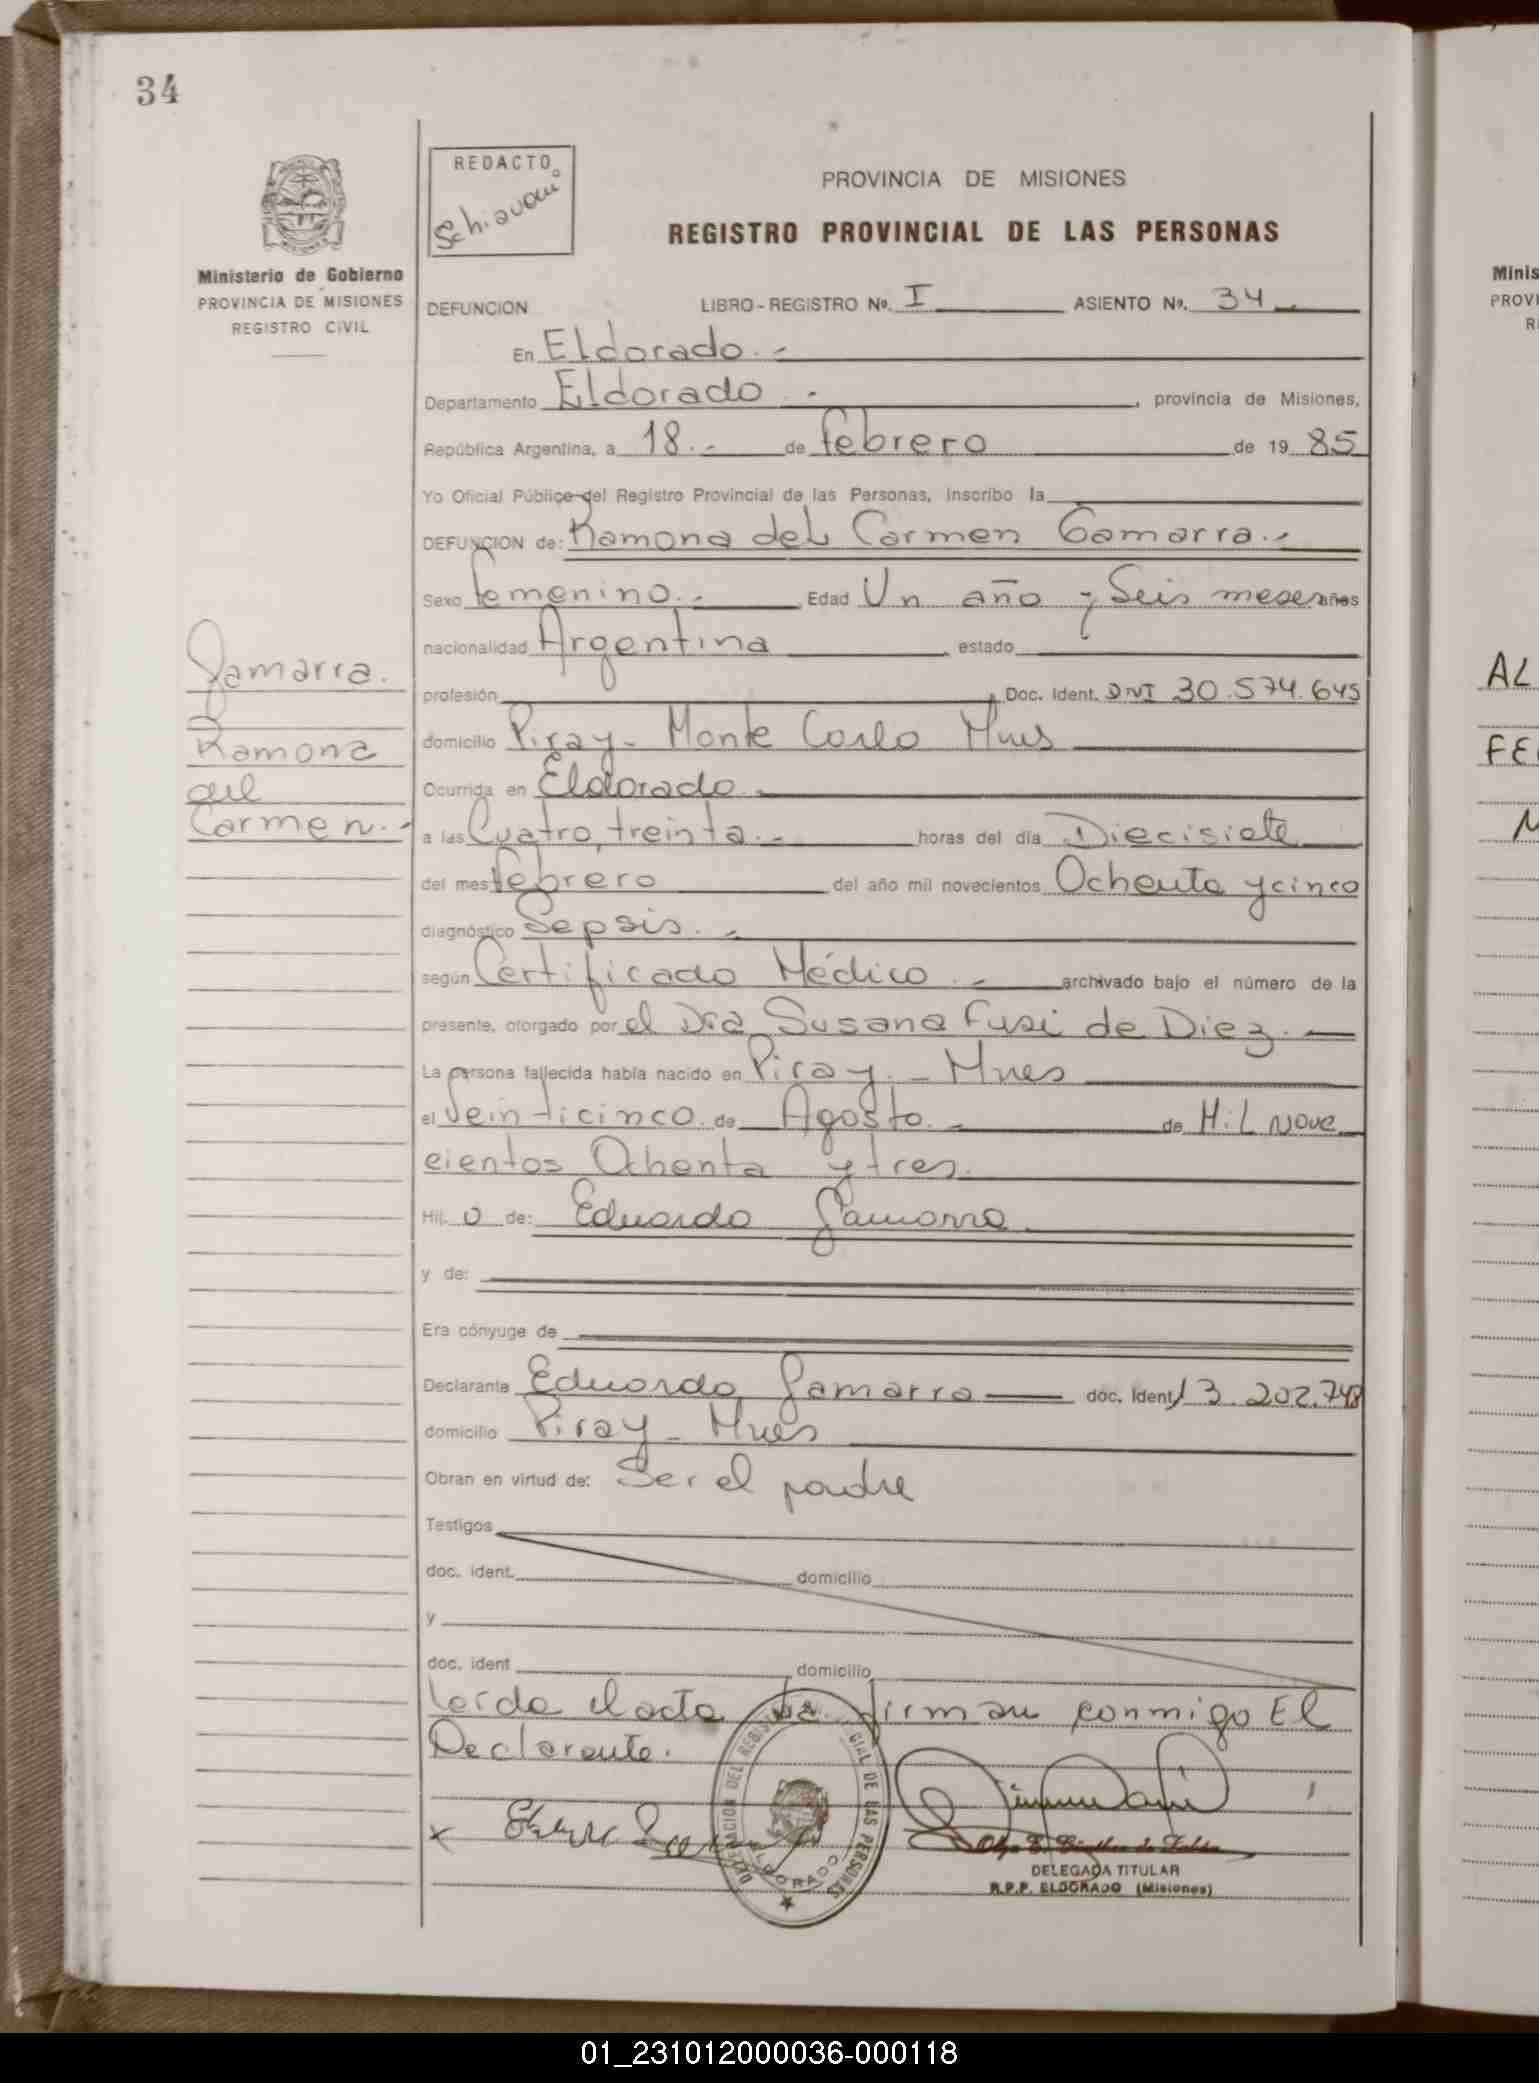 34
REDACTO
Schiavoni
Ministerio de Gobierno
PROVINCIA DE MISIONES
REGISTRO CIVIL
PROVINCIA DE MISIONES
REGISTRO PROVINCIAL DE LAS PERSONAS
DEFUNCION LIBRO - REGISTRO Nº. I ASIENTO Nº. 34.-
En Eldorado.-
Departamento Eldorado.-, provincia de Misiones,
República Argentina, a 18.- de febrero de 19 85
Yo Oficial Público del Registro Provincial de las Personas, inscribo la
DEFUNCION de: Ramona del Carmen Gamarra.-
Sexo femenino.- Edad Un año y Seis meses años
nacionalidad Argentina estado
profesión , Doc. Ident. DNI 30.574.645
domicilio Piray - Monte Carlo Mnes
Ocurrida en Eldorado.-
a las Cuatro, treinta.- horas del día Diecisiete
del mes febrero del año mil novecientos Ochenta y cinco
diagnóstico Sepsis.-
según Certificado Médico.- archivado bajo el número de la
presente, otorgado por el Dra Susana Fusi de Diez.
La persona fallecida había nacido en Piray.- Mnes
el Veinticinco de Agosto.- de Mil Nove
cientos Ochenta y tres.
Hij o de: Eduardo Gamarra
y de:
Era cónyuge de
Declarante Eduardo Gamarra doc. Ident 13.202.748
domicilio Piray - Mnes
Obran en virtud de: Ser el padre
Testigos
doc. ident. domicilio
y
doc. ident domicilio
Leída el acta la firman conmigo El
Declarante.
Gamarra.
Ramona
del
Carmen.-
x
DELEGACION DEL REGISTRO PROVINCIAL DE LAS PERSONAS
ELDORADO
DELEGADA TITULAR
R.P.P. ELDORADO (Misiones)
Minis
PROVI
R
AL
FE
01_231012000036-000118